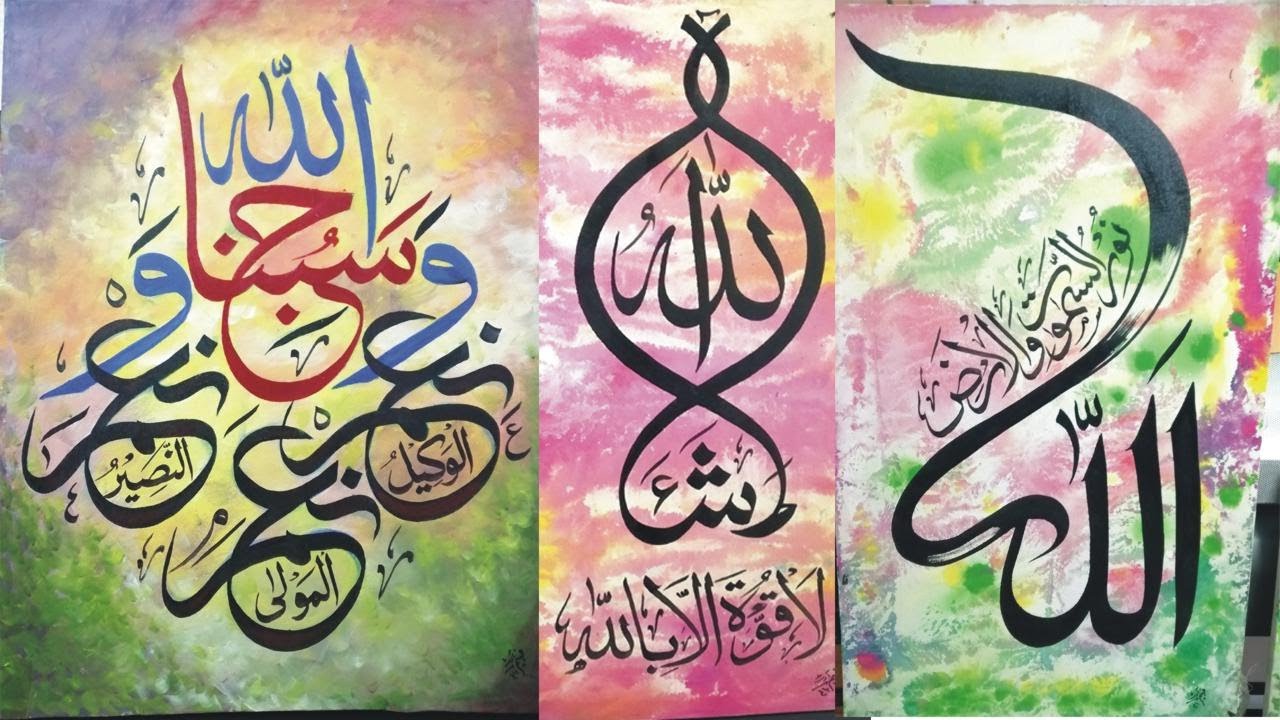 حسبنا الله
و نعم الوكيل
نعم المولى
و نعم النصير
ما شاء الله
لا قوة الا بالله
الله
نور السموت والارض